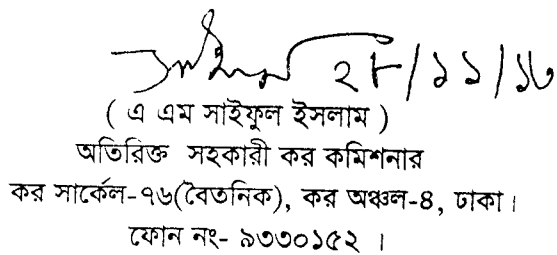 ২৮/১১/১৬
( এ এম সাইফুল ইসলাম )
অতিরিক্ত সহকারী কর কমিশনার
কর সার্কেল-৭৬(বৈতনিক), কর অঞ্চল-৪, ঢাকা।
ফোন নং- ৯৩৩০১৫২ ।